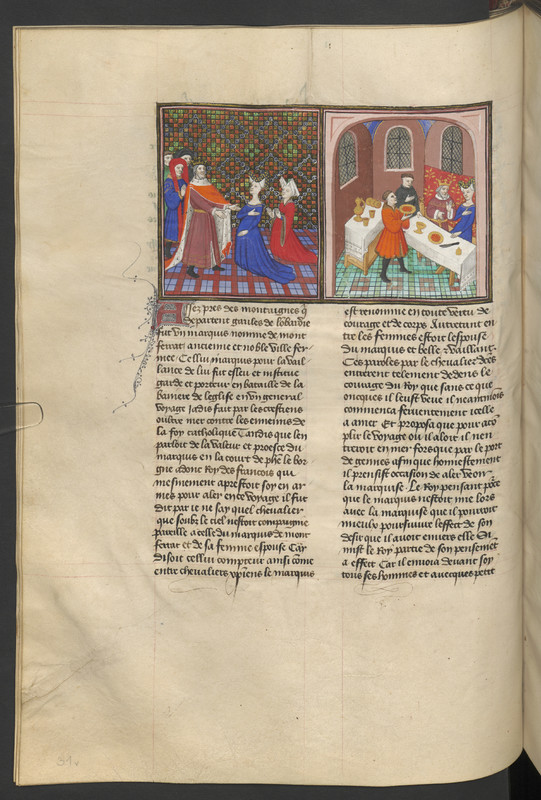 Assez pres des montaignes q̃
departent gaules de lõbardie
fut vn marquis nomme de mont
ferrat ancienne et noble ville fer
mee Cellui marquis pour la vail
lance de lui fut esleu et institue
garde et porteur en bataille de la
baniere de leglise en vng general
voyage Jadis fait par les crestiens
oultre mer contre les ennemis de
la foy catholique Tandis que len
parloit de la valeur et proesce du
marquis en la court de phe le bor
gne adonc Roy des francois qui
mesmement aprestoit soy en ar
mes pour aler en ce voyage il fut
dit par ie ne say quel chevalier
que soubz le ciel nestoit compaignie
pareille a celle du marquis de mont
ferrat et de sa femme espouse Car
disoit cellui compteur ainsi cõme
entre chevaliers xp̃iens le marquis
est renomme en toute vertu de
courage et de corps Autretant en
tre les femmes estoit lespouse
du marquis et belle et vaillant
Ces paroles par le chevalier dc̃es
entrerent telement dedens le
courage du Roy que sans ce que
oncques il leust veue il neantmois
commenca ferventement icelle
a amer Et proposa que pour acõ
plir le voyage ou il aloit il nen
treroit en mer forsque par le port
de gennes afin que honnestement
il prensist occasion de aler veoir
la marquise Le Roy pensant põce
que le marquis nestoit mie lors
avec la marquise que il pourroit
mieulx poursuivre leffect de son
desir que il avoit envers elle Si
mist le Roy partie de son pensemẽt
a effect Car il envoia devant soy
tous ses hommes et avecques petit
51v